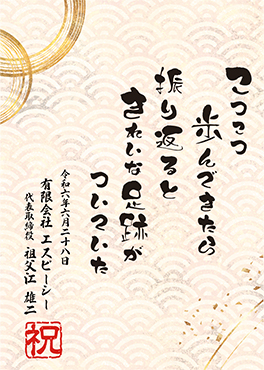 こつこつ
歩んできたら
振り返ると
きれいな足跡が
ついていた
令和六年六月二十八日
有限会社 エスピーシー
代表取締役 祖父江 雄二
祝